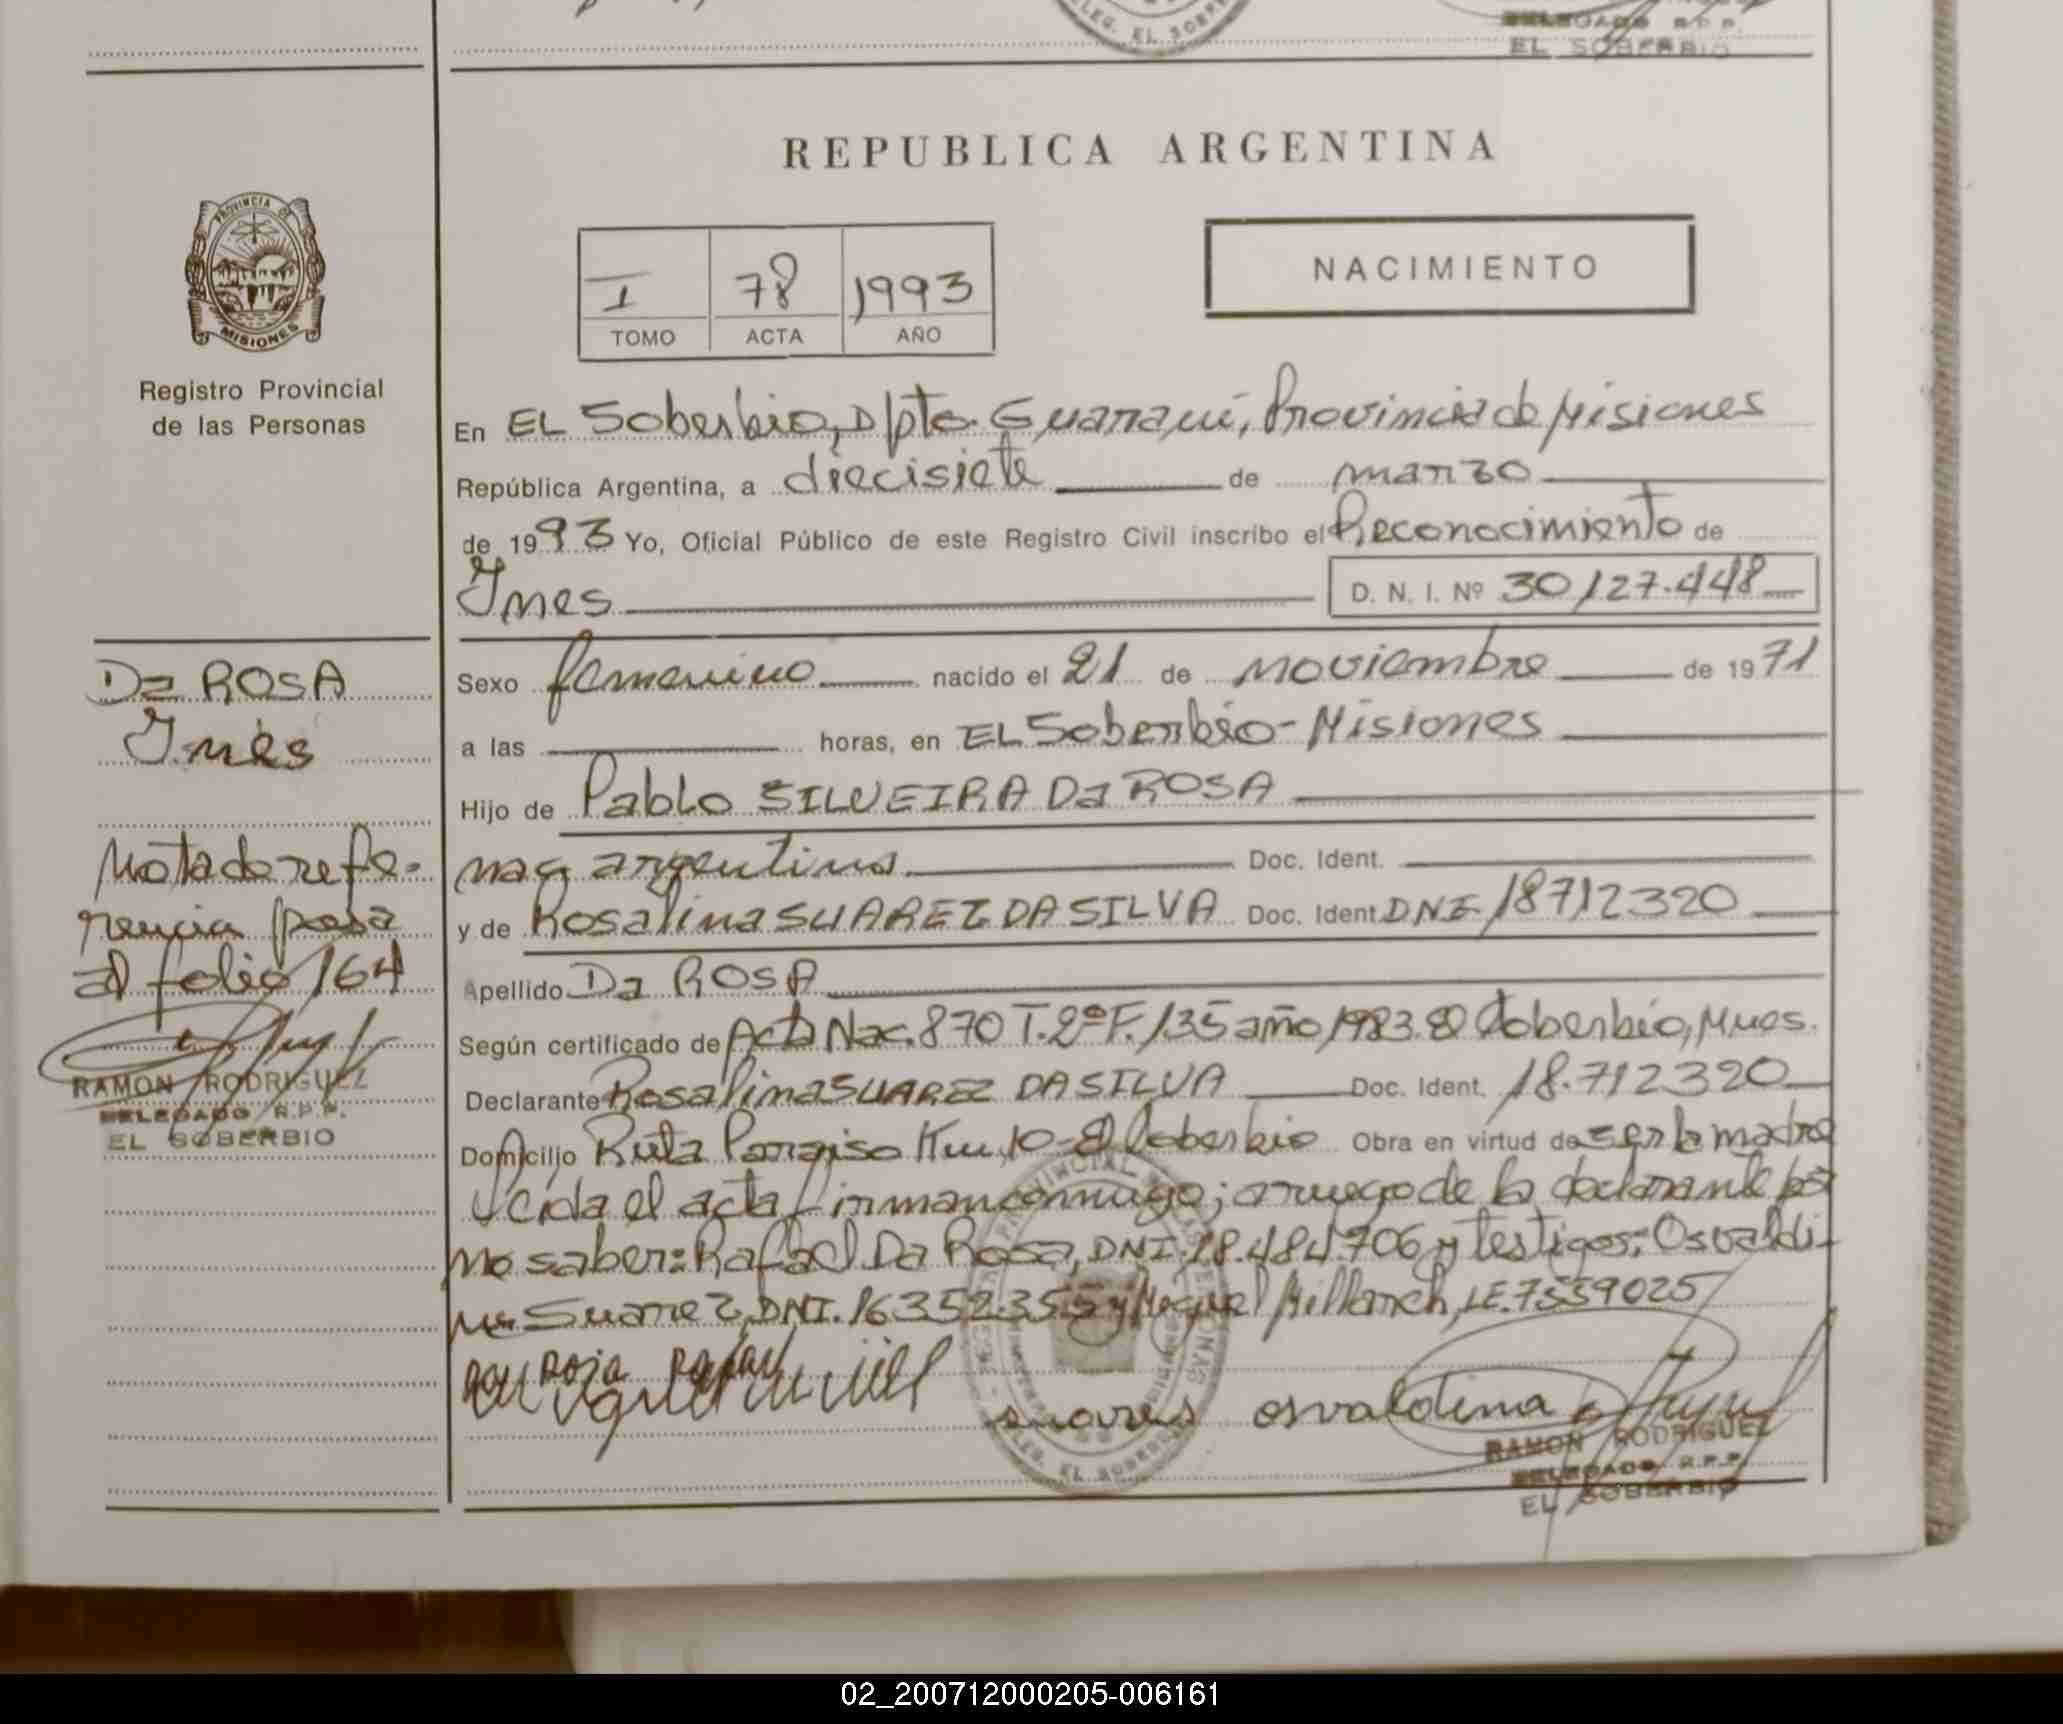 DELEGADO R.P.P.
EL SOBERBIO
DELEG. EL SOBERBIO
REPUBLICA ARGENTINA
PROVINCIA DE
MISIONES
Registro Provincial
de las Personas
I 78 1993
TOMO ACTA AÑO
NACIMIENTO
En EL Soberbio, Dpto. Guaraní, Provincia de Misiones
República Argentina, a diecisiete de marzo
de 1993 Yo, Oficial Público de este Registro Civil inscribo el Reconocimiento de
Ines D. N. I. Nº 30127.448
Da ROSA
Inés
Nota de refe-
rencia pasa
al folio 164
RAMON RODRIGUEZ
DELEGADO R.P.P.
EL SOBERBIO
Sexo femenino nacido el 21 de noviembre de 1971
a las horas, en EL Soberbio - Misiones
Hijo de Pablo SILVEIRA Da ROSA
nac argentina Doc. Ident.
y de Rosalina SUAREZ DA SILVA Doc. Ident DNI. 18712320
Apellido Da ROSA
Según certificado de Acta Nac. 870 T. 2º F. 135 año 1983. El Soberbio, Mnes.
Declarante Rosalina SUAREZ DA SILVA Doc. Ident. 18.712320
Domicilio Ruta Paraiso Km 10 - El Soberbio Obra en virtud de ser la madre
Leida el acta firman conmigo; a ruego de la declarante por
no saber: Rafael Da Rosa, DNI. 18.484.706 y testigos: Osvaldi-
na Suarez, DNI. 16352.355 y Miguel LE. 7559025
suares osvaldina
RAMON RODRIGUEZ
DELEGADO R.P.P.
EL SOBERBIO
02_200712000205-006161